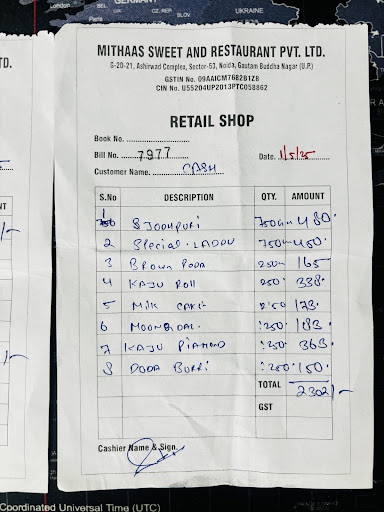 GERMANY
UKRAINE
London
MITHAAS SWEET AND RESTAURANT PVT. LTD.
G-20-21, Ashirwad Complex, Sector-53, Noida, Gautam Buddha Nagar (U.P.)
GSTIN No. 09AAICM7682B1Z8
CIN No. U55204UP2013PTC058862
RETAIL SHOP
Book No.
Bill No. 7977 Date. 1/5/25
Customer Name. CASH
S.No DESCRIPTION QTY. AMOUNT
1 S JODHPURI 750Gm 480.
2 Special. LADDU 750m 450.
3 Brown DODA 250m 165
4 KAJU ROLL 250 338.
5 Milk CAKE 250 173.
6 MOONGDAL. 250 183.
7 KAJU DIAMOND 250 363.
8 DODA BURFI 250 150.
TOTAL 2302/-
GST
Cashier Name & Sign.
Coordinated Universal Time (UTC)
TD.
NT